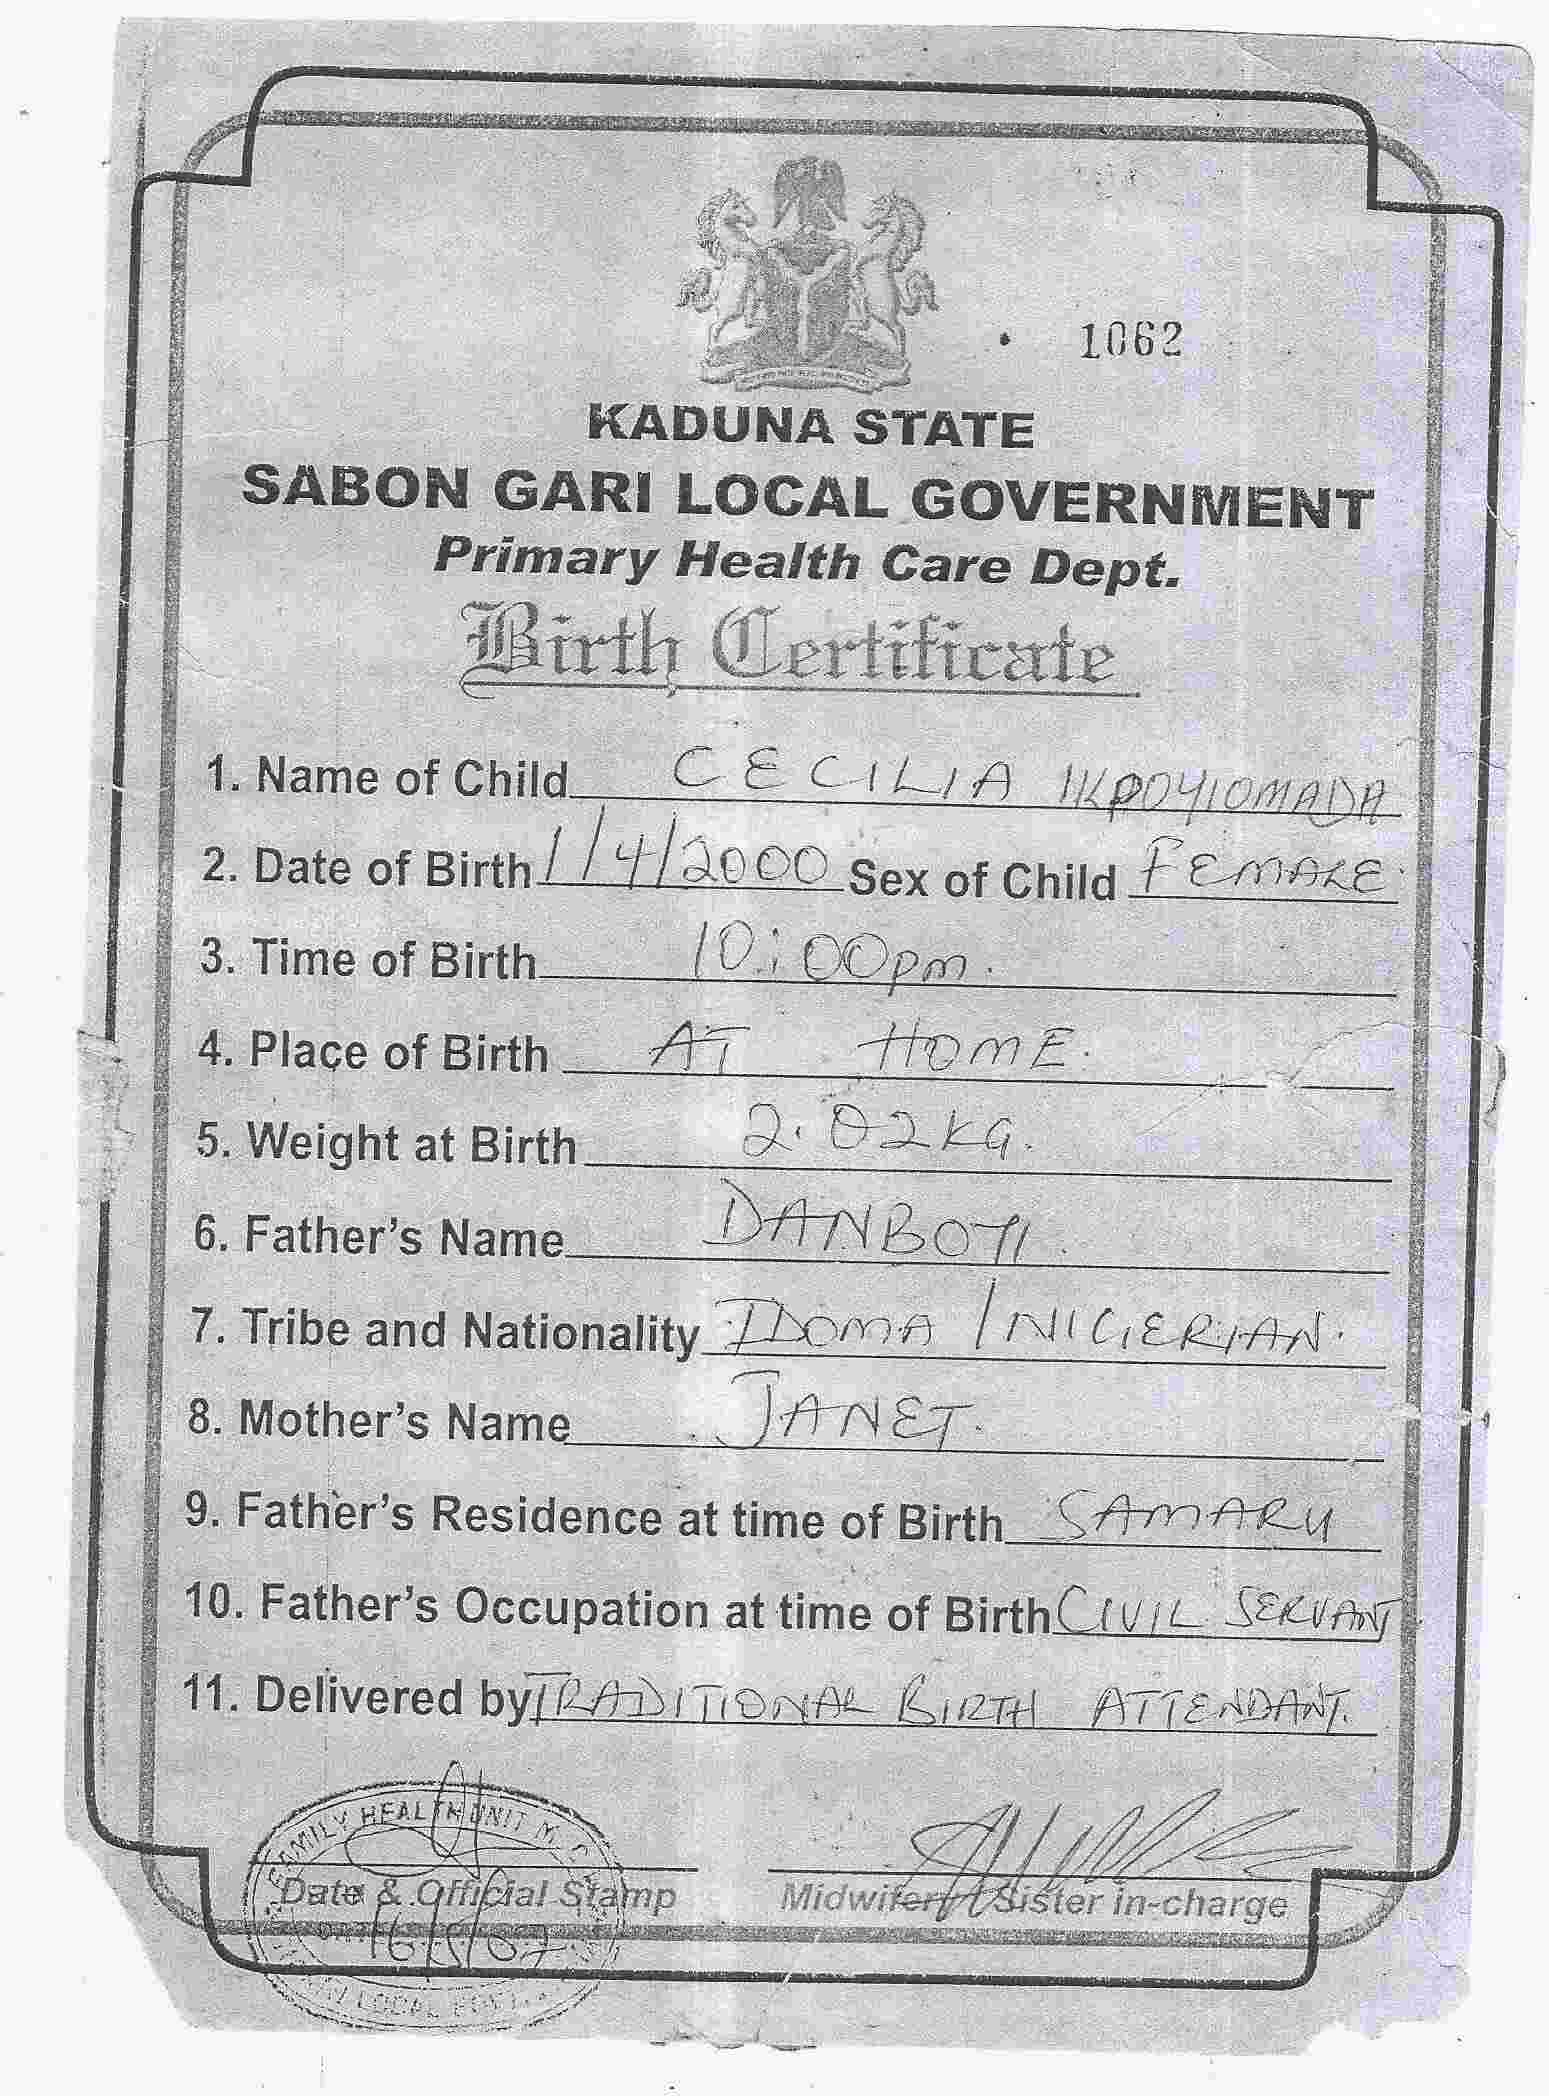 1062
KADUNA STATE
SABON GARI LOCAL GOVERNMENT
Primary Health Care Dept.
Birth Certificate
1. Name of Child CECILIA IKPOYIOMADA
2. Date of Birth 1/4/2000 Sex of Child FEMALE
3. Time of Birth 10:00pm.
4. Place of Birth AT HOME.
5. Weight at Birth 2.02KG.
6. Father's Name DANBOYI.
7. Tribe and Nationality IDOMA / NIGERIAN.
8. Mother's Name JANET.
9. Father's Residence at time of Birth SAMARU
10. Father's Occupation at time of Birth CIVIL SERVANT.
11. Delivered by TRADITIONAL BIRTH ATTENDANT.
FAMILY HEALTH UNIT
Date & Official Stamp Midwifery / Sister in-charge
LOCAL